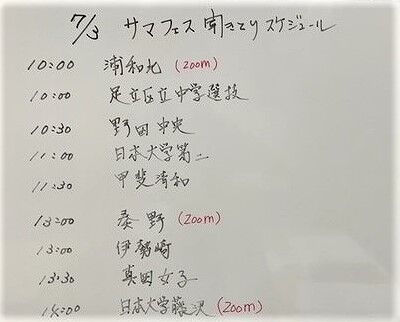 7/3 サマフェス 聞きとり スケジュール
10:00 浦和北 (zoom)
10:00 足立区立中学選技
10:30 野田中央
11:00 日本大学第二
11:30 甲斐清和
13:00 秦野 (zoom)
13:00 伊勢崎
13:30 真田女子
14:00 日本大学藤沢 (zoom)